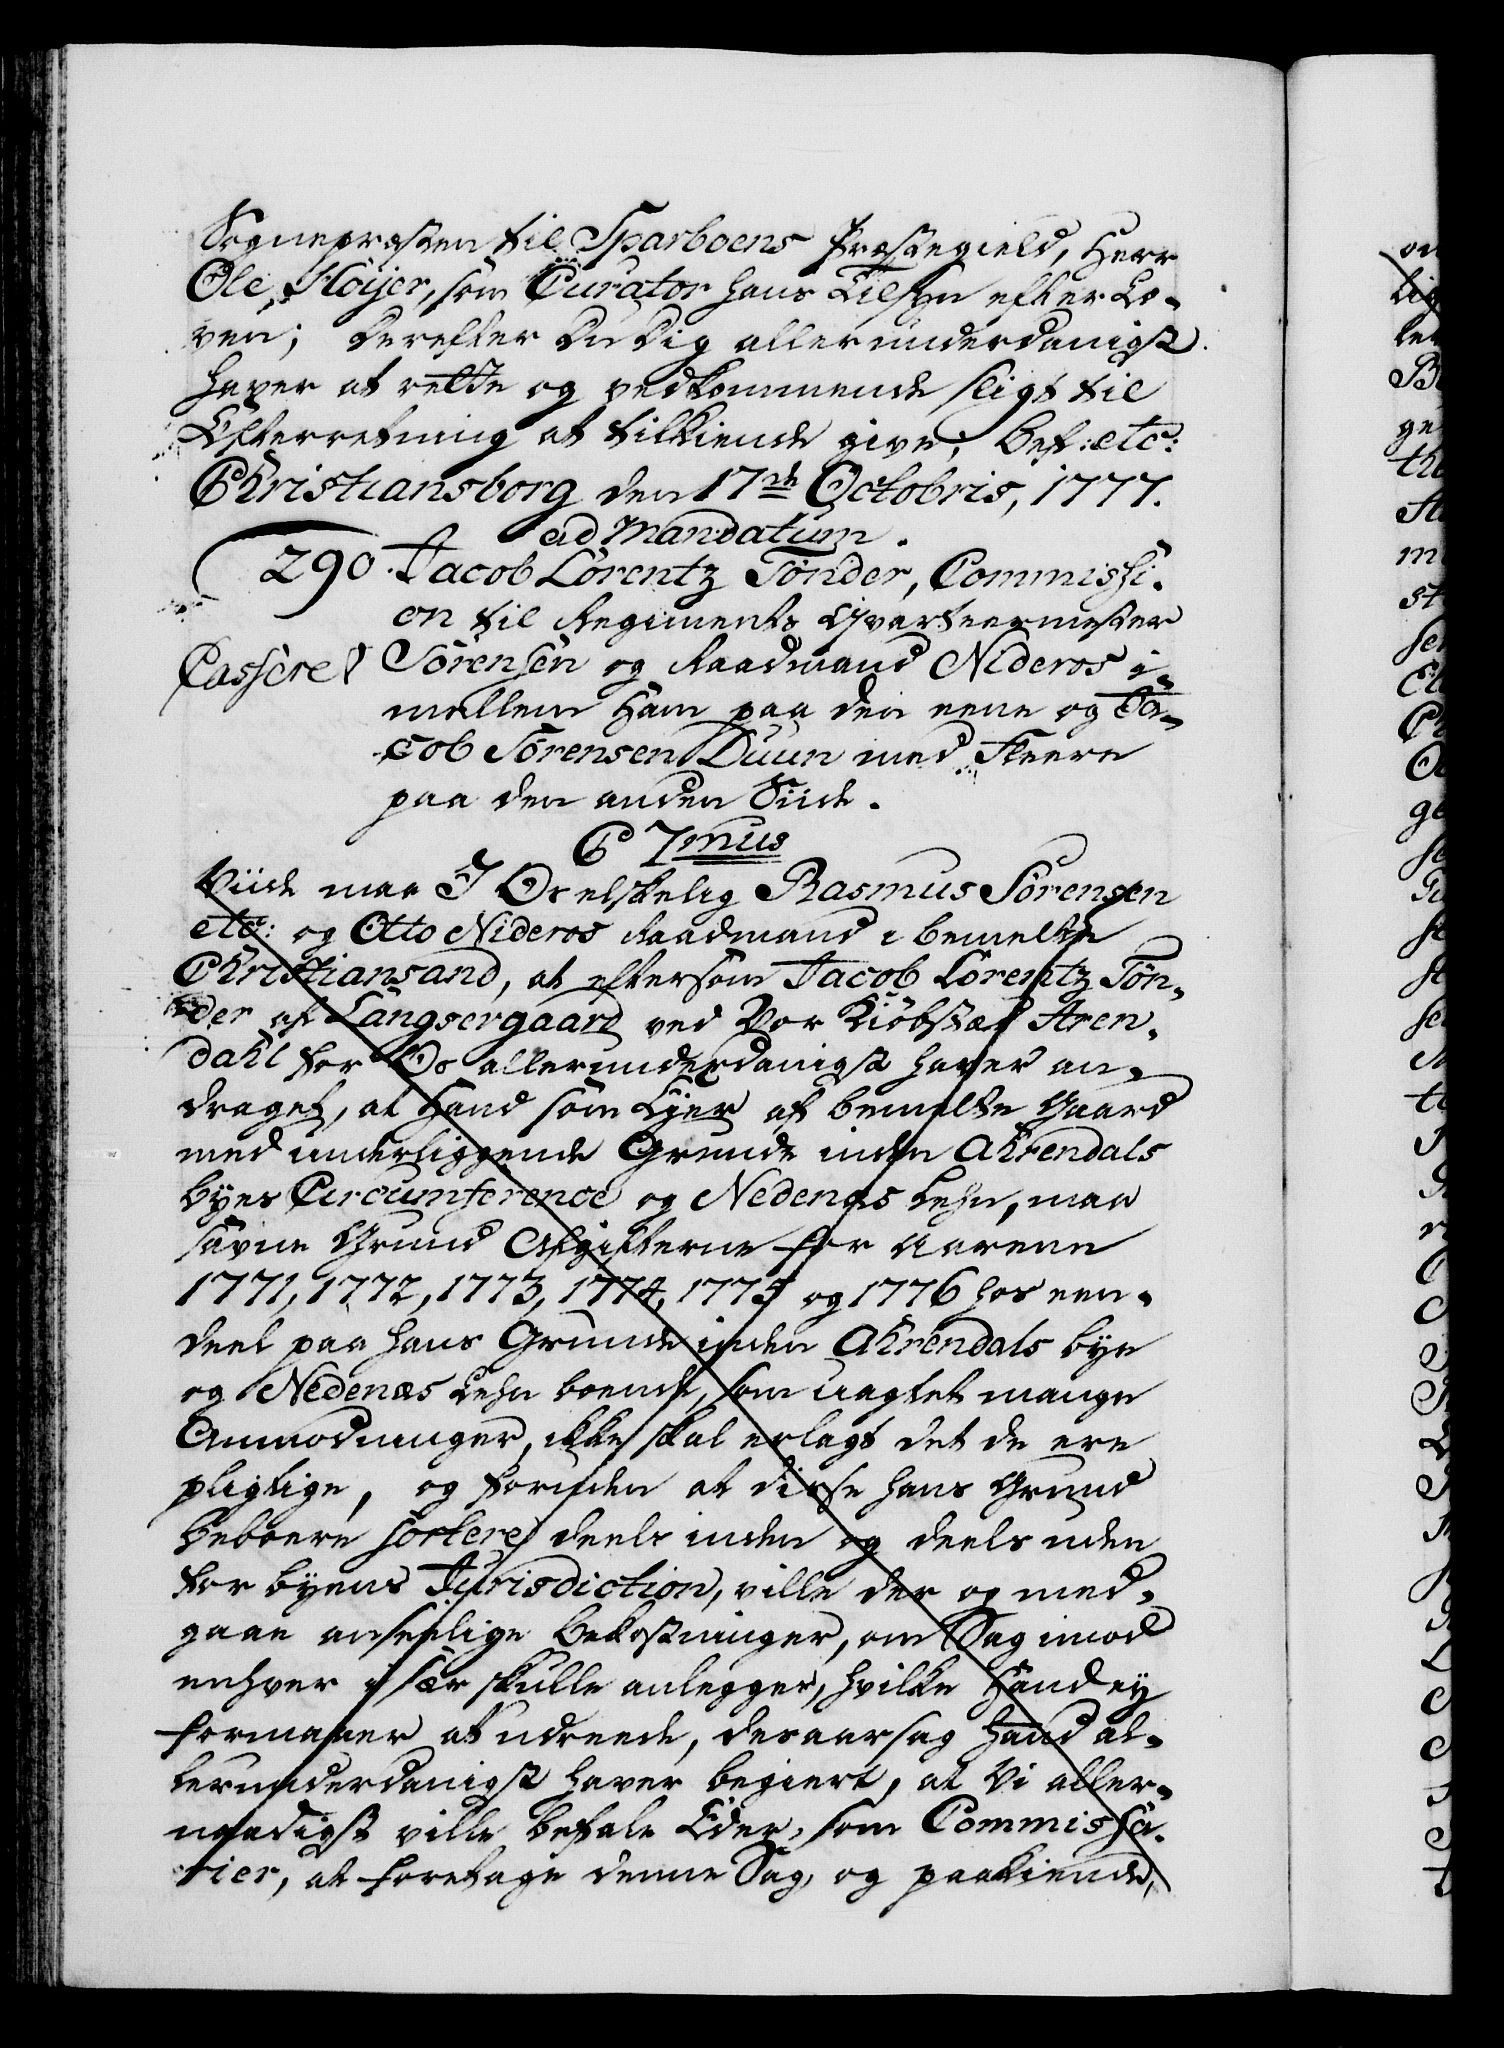 Sognepræsten til Sparboens Præstegield, Herr
Ole Höijer, som Curator hans Tilsyn efter Lo-
ven; derefter Du Dig allerunderdanigst
haver at rette og vedkommende sligt til
Efterretning at tilkiende give; Bef: etc:
Christiansborg den 17de Octobris, 1777.
ad Mandatum.
290. Jacob Lorentz Tönder, Commissi-
on til Regiments Qvarteermester
Cassere Sörensen og Raadmand Nideros i-
mellem Ham paa den eene og Ja-
cob Sörensen Duun med Fleere
paa den anden Siide.
C 7mus
Viide maa I Os elskelig Rasmus Sörensen
etc: og Otto Nideros Raadmand i bemelte
Christiansand, at eftersom Jacob Lorentz Tön-
der af Langsergaard ved Vor Kiöbstæd Aren-
dahl for Os allerunderdanigst haver an-
draget, at Hand som Eyer af bemelte Gaard
med underliggende Grunde inden Ahrendals
byes Circumference og Nedenæs Lehn, maa
savne Grund Afgifterne for Aarene
1771, 1772, 1773, 1774, 1775 og 1776 hos een-
deel paa hans Grunde inden Ahrendals bye
og Nedenæs Lehn boende, som uagtet mange
Anmodninger, ikke skal erlagt det de ere
pligtige, og forinden at disse hans Grund
Beboere sortere deels inden og deels uden
for byens Jurisdiction, ville der og med-
gaae anseelige Bekostninger, om Sag imod
enhver i sær skulle anlegges, hvilke Hand ey
formaaer at udreede, desaarsag Hand al-
lerunderdanigst haver begiert, at Vi aller-
naadigst ville befale Eder, som Commissa-
rier, at foretage denne Sag, og paakiende,